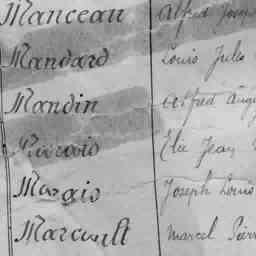 Manceau Alfred Josep
Mandard Louis Jules
Mandin Alfred Augu
Marais Elie Jean
Marais Joseph Louis
Marcault Marcel Pierr